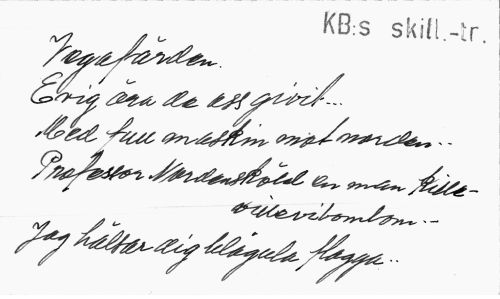 KB:s skill.-tr.
Vegafärden.
Evig ära de oss givit...
Med full maskin mot norden...
Professor Nordensköld en man kille-
villevibombom...
Jag hälsar dig blågula flagga..